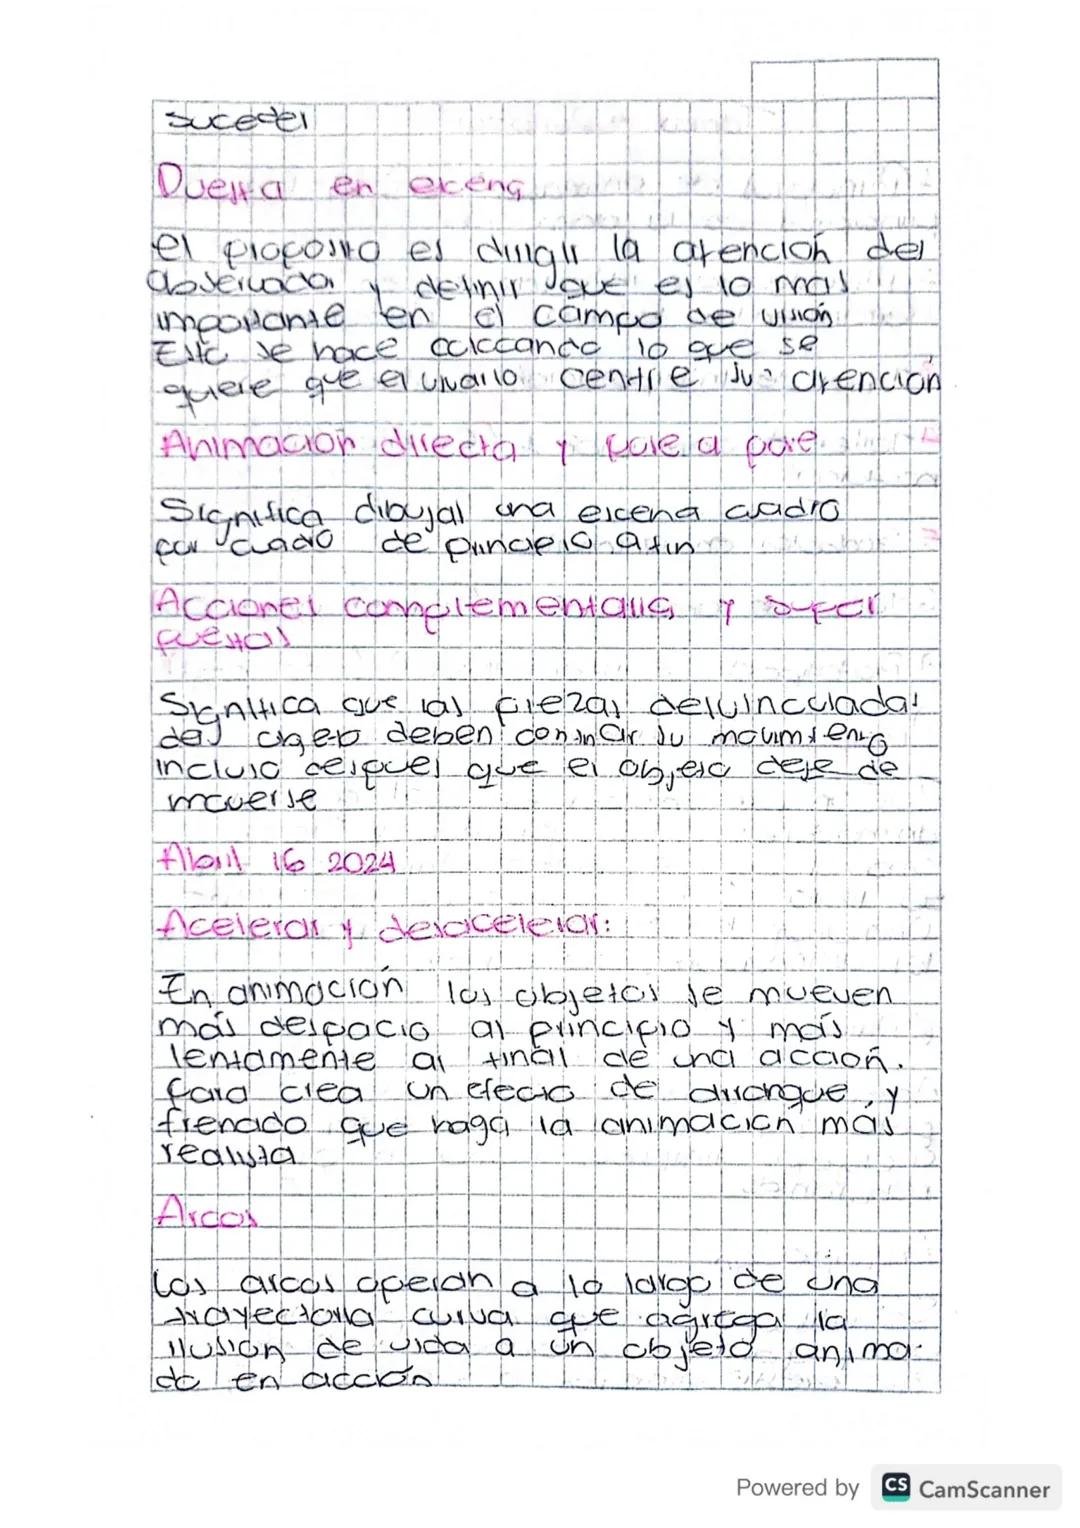 suceder
Puesta en escena
el proposito es dirigir la atención del
observador y definir que es lo mas
importante en el campo de visión
Esto se hace colocando lo que se
quiere que el usuario centre su atención
Animacion directa y pose a pose
Significa dibujar una escena cuadro
por cuadro de principio a fin
Acciones complementarias y super
puestas
Significa que las piezas desvinculadas
del objeto deben continuar su movimiento
incluso despues que el objeto deje de
moverse
Abril 16 2024
Acelerar y desacelerar:
En animación los objetos se mueven
más despacio al principio y más
lentamente al final de una acción.
Para crea un efecto de arranque, y
frenado que haga la animación más
realista
Arcos
Los arcos operan a lo largo de una
trayectoria curva que agrega la
ilusión de vida a un objeto anima-
do en acción
Powered by CS CamScanner